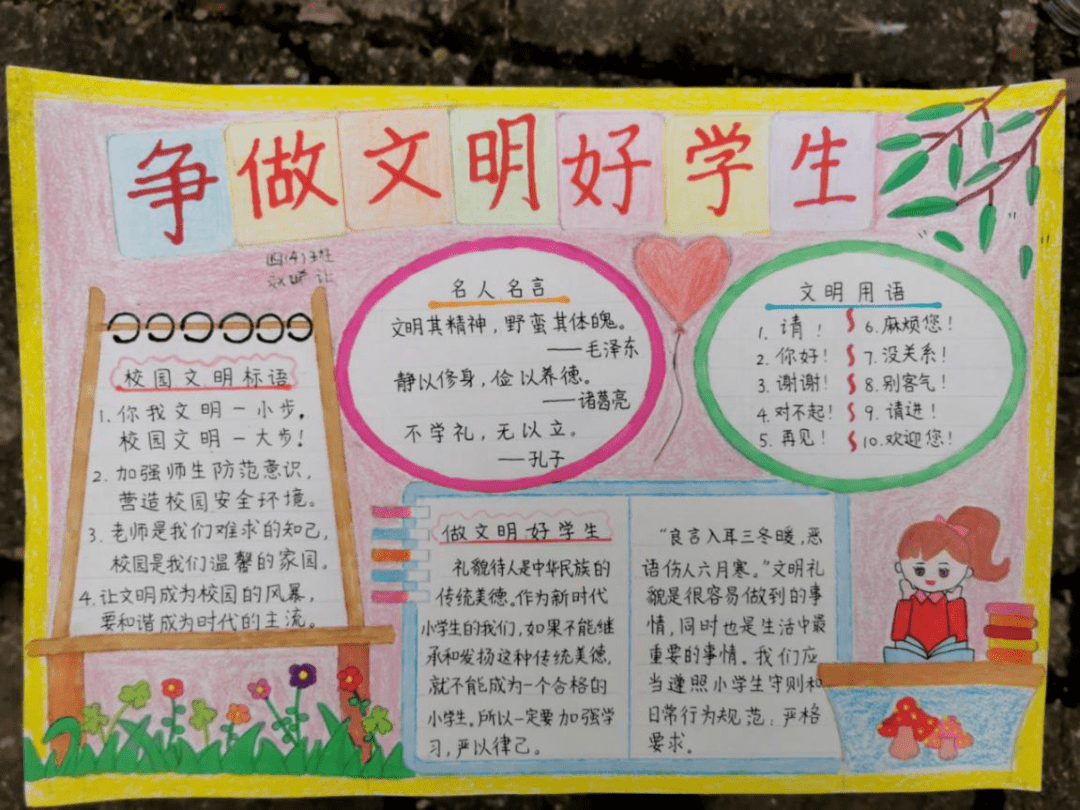 争做文明好学生
四(4)班
校园文明标语
1.你我文明一小步,
校园文明一大步!
2.加强师生防范意识,
营造校园安全环境。
3.老师是我们难求的知己,
校园是我们温馨的家园。
4.让文明成为校园的风暴,
要和谐成为时代的主流。
名人名言
文明其精神,野蛮其体魄。
——毛泽东
静以修身,俭以养德。
——诸葛亮
不学礼,无以立。
——孔子
文明用语
1.请!
2.你好!
3.谢谢!
4.对不起!
5.再见!
6.麻烦您!
7.没关系!
8.别客气!
9.请进!
10.欢迎您!
做文明好学生
礼貌待人是中华民族的
传统美德。作为新时代
小学生的我们,如果不能继
承和发扬这种传统美德,
就不能成为一个合格的
小学生。所以一定要加强学
习,严以律己。
“良言入耳三冬暖,恶
语伤人六月寒。”文明礼
貌是很容易做到的事
情,同时也是生活中最
重要的事情。我们应
当遵照小学生守则和
日常行为规范;严格
要求。